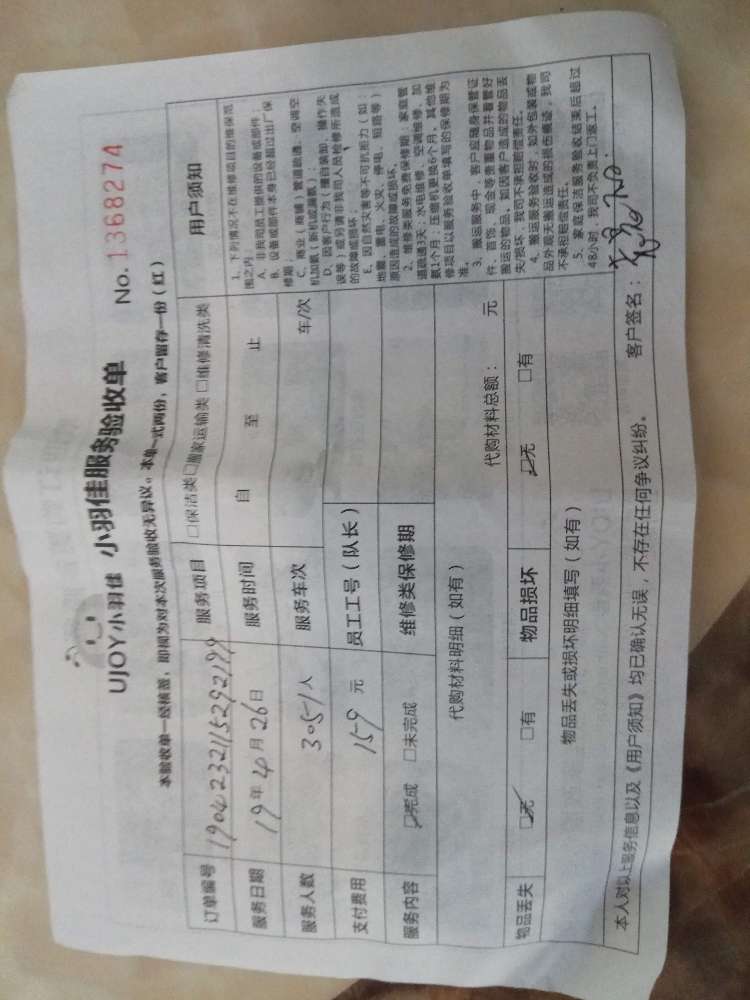 UJOY小羽佳 小羽佳服务验收单 No. 1368274
本验收单一经核签，即视为对本次服务验收无异议。本单一式两份，客户留存一份（红）
订单编号 190423211529219 服务项目 □保洁类□搬家运输类□维修清洗类 用户须知
服务日期 19年4月26日 服务时间 自 至 止
服务人数 305-1人 服务车次 车/次
支付费用 159 元 员工工号（队长）
服务内容 □完成 □未完成 维修类保修期
代购材料明细（如有） 代购材料总额： 元
物品丢失 □无 □有 物品损坏 □无 □有
物品丢失或损坏明细填写（如有）
1、下列情况不在维修项目的维保范
围之内：
A、非我司员工提供的设备或部件；
B、设备或部件本身已经超过出厂保
修期；
C、商业（商铺）管道疏通、空调空
机加氨（新机或漏氨）；
D、因客户行为（擅自装卸、操作失
误等）或另请非我司人员检修所造成
的故障或损坏；
E、因自然灾害等不可抗拒力（如：
地震、雷电、火灾、停电、短路等）
原因造成的故障或损坏。
2、维修类服务免费保修期：家庭管
道疏通3天；水电维修、空调维修、加
氨1个月；压缩机更换6个月，其他维
修项目以服务验收单填写的保修期为
准。
3、搬运服务中，客户应随身保管证
件、首饰、现金等贵重物品并看管好
搬运的物品，如因客户造成的物品丢
失/损坏，我司不承担赔偿责任。
4、搬运服务验收时，如外包装或物
品外观无搬运造成的损伤痕迹，我司
不承担赔偿责任。
5、家庭保洁服务验收结束后超过
48小时，我司不负责上门返工。
本人对以上服务信息以及《用户须知》均已确认无误，不存在任何争议纠纷。 客户签名：